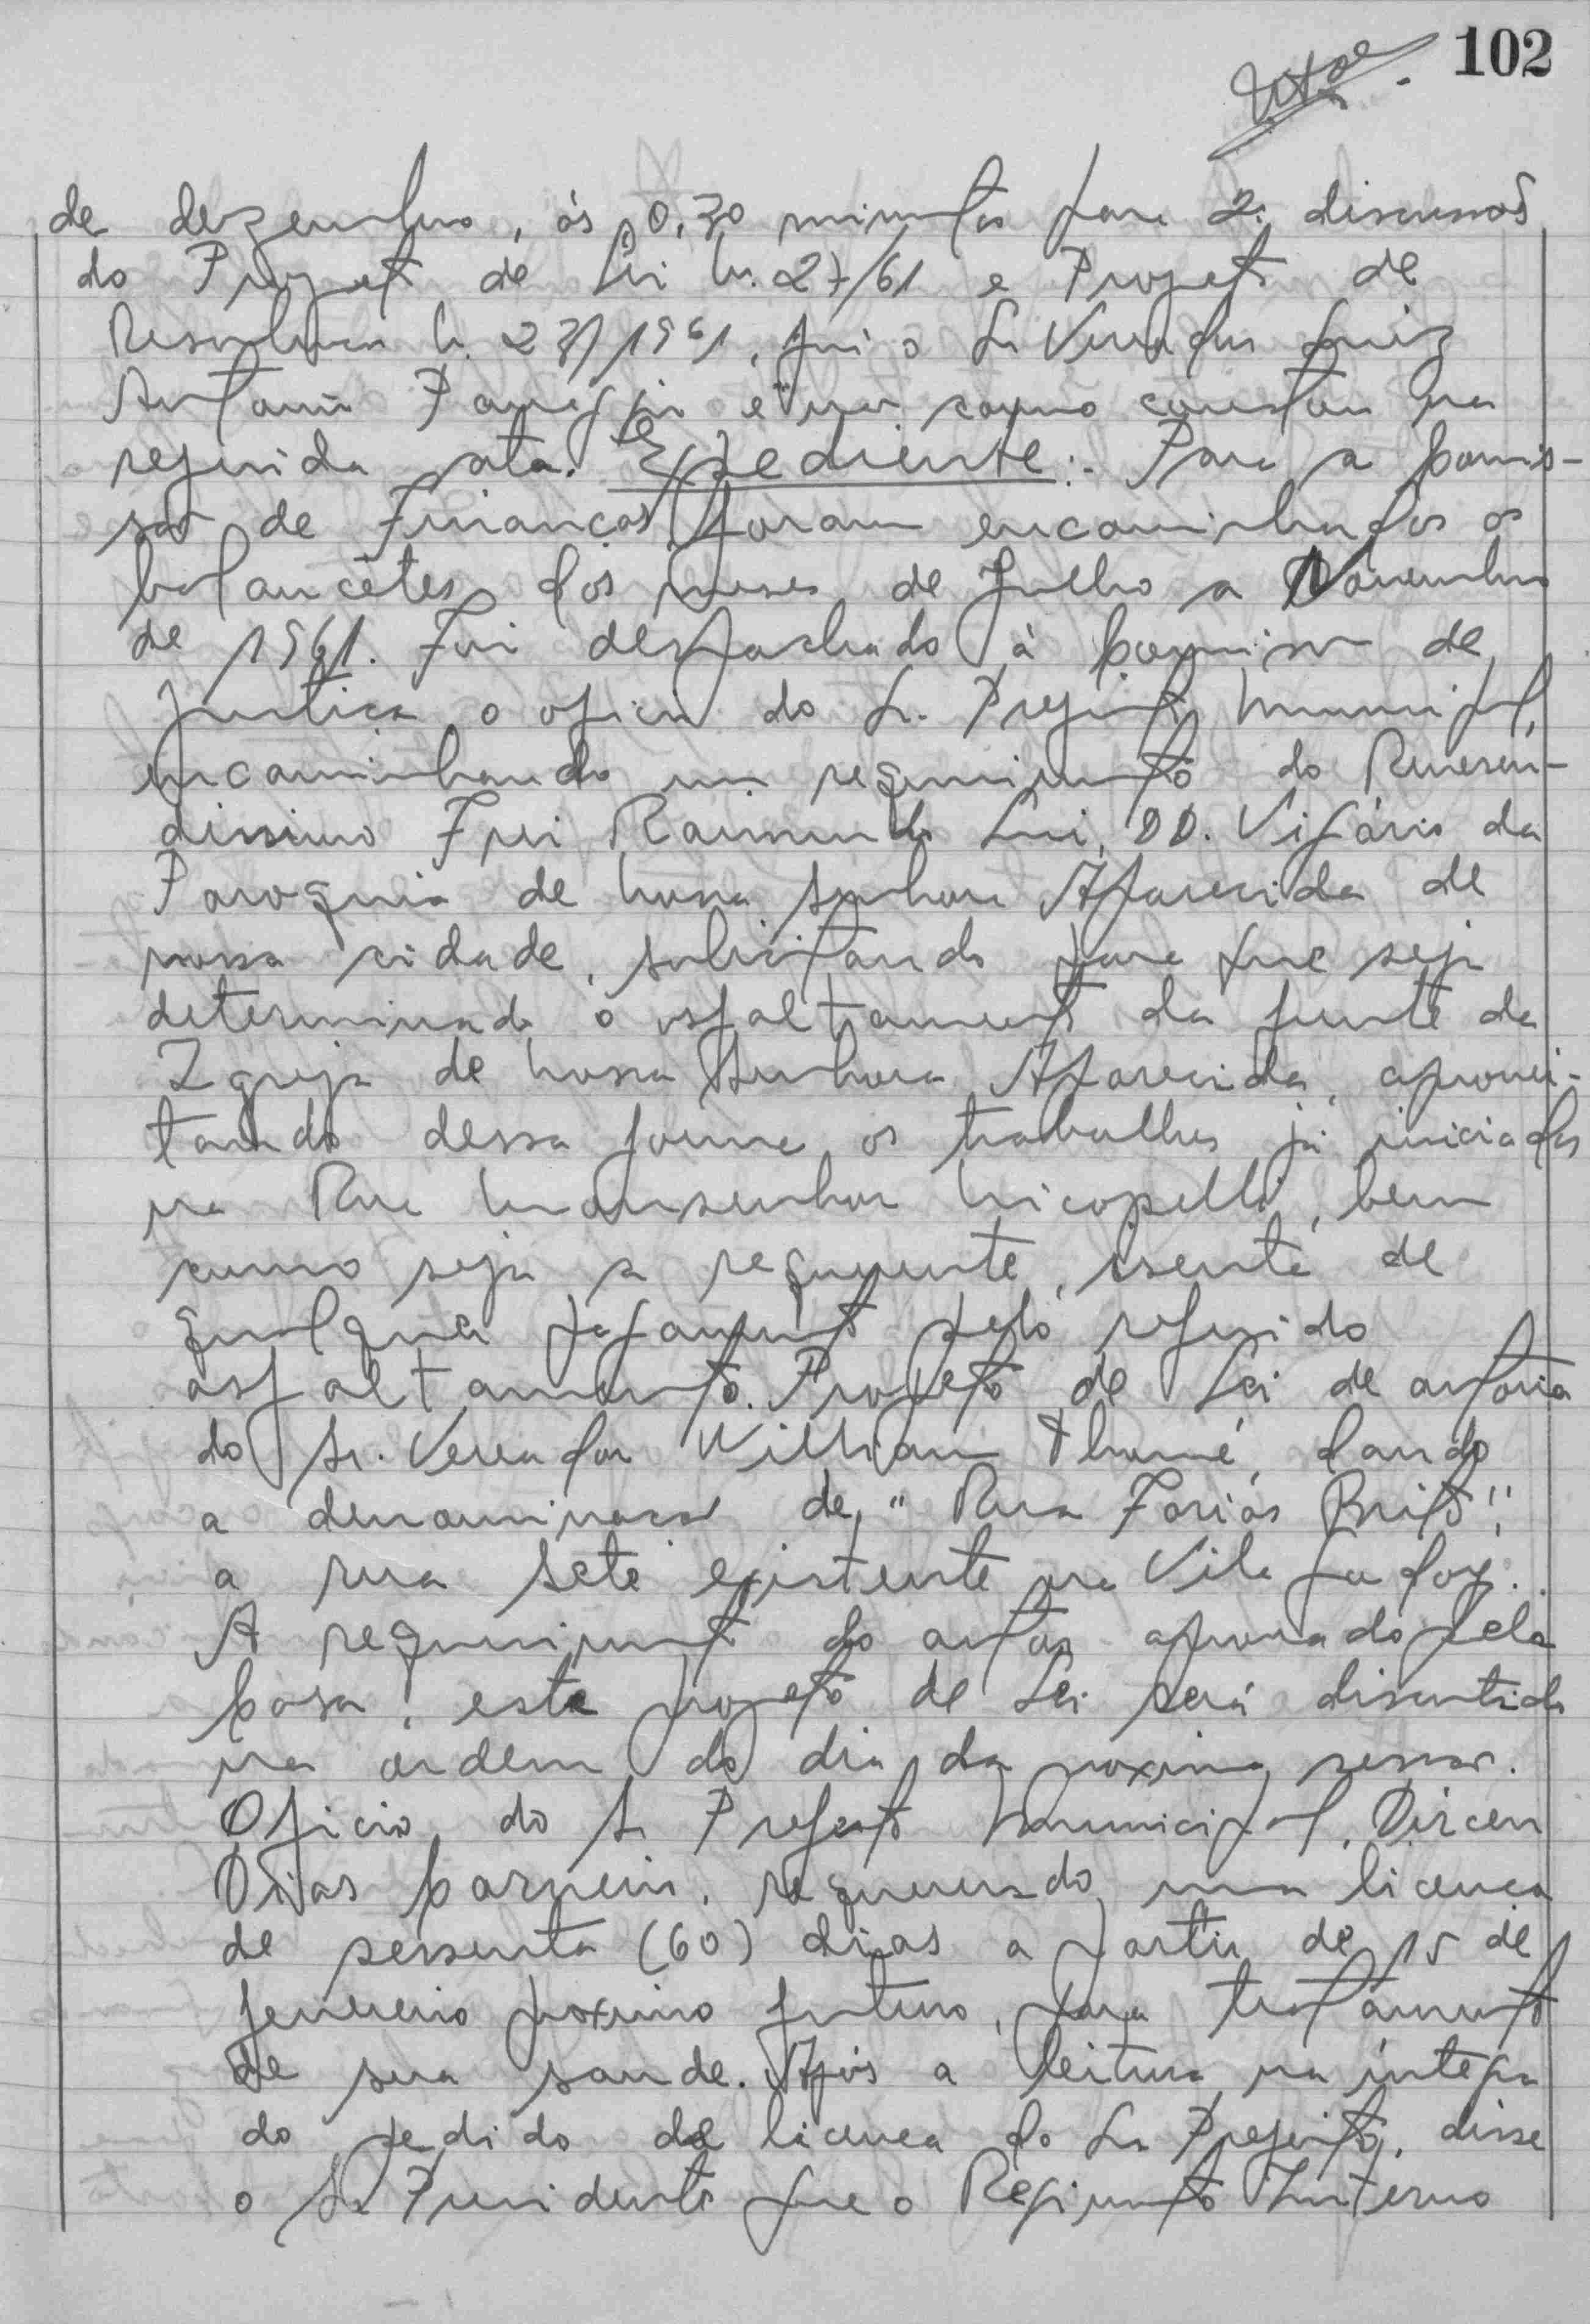 102
de dezembro, ás 20,30 minutos para 2ª discussão
do Projeto de Lei n. 27/61 e Projeto de
Resolução n. 23/1961, foi o Sr Vereador Luiz
Antonio e não como constou na
referida ata. Expediente:. Para a Comis-
são de Finanças foram encaminhados os
balancêtes dos meses de Julho a Novembro
de 1961. Foi despachado à Comissão de
Justiça o oficio do Sr. Prefeito Municipal,
encaminhando um requerimento do Reveren-
dissimo Frei Raimundo Lui, DD. Vigário da
Paroquia de Nossa Senhora Aparecida de
nossa cidade, solicitando para que seja
determinado o asfaltamento da frente da
Igreja de Nossa Senhora Aparecida, aprovei-
tando dessa forma os trabalhos já iniciados
na Rua Monsenhor Nicopelli, bem
como seja a requerente, isenta de
qualquer pagamento pelo referido
asfaltamento. Projeto de Lei de autoria
do Sr. Vereador William Thomé, dando
a denominação de "Rua Farias Brito",
a rua Sete existente na Vila
A requerimento do autor aprovado pela
Casa, este projeto de Lei será discutido
na ordem do dia da proxima sessão.
Oficio do Sr Prefeito Municipal, Dirceu
Dias Carneiro, requerendo uma licença
de sessenta (60) dias a partir de 15 de
fevereiro proximo futuro, para tratamento
de sua saude. Após a leitura na íntegra
do pedido de licença do Sr Prefeito, disse
o Sr Presidente que o Regimento Interno